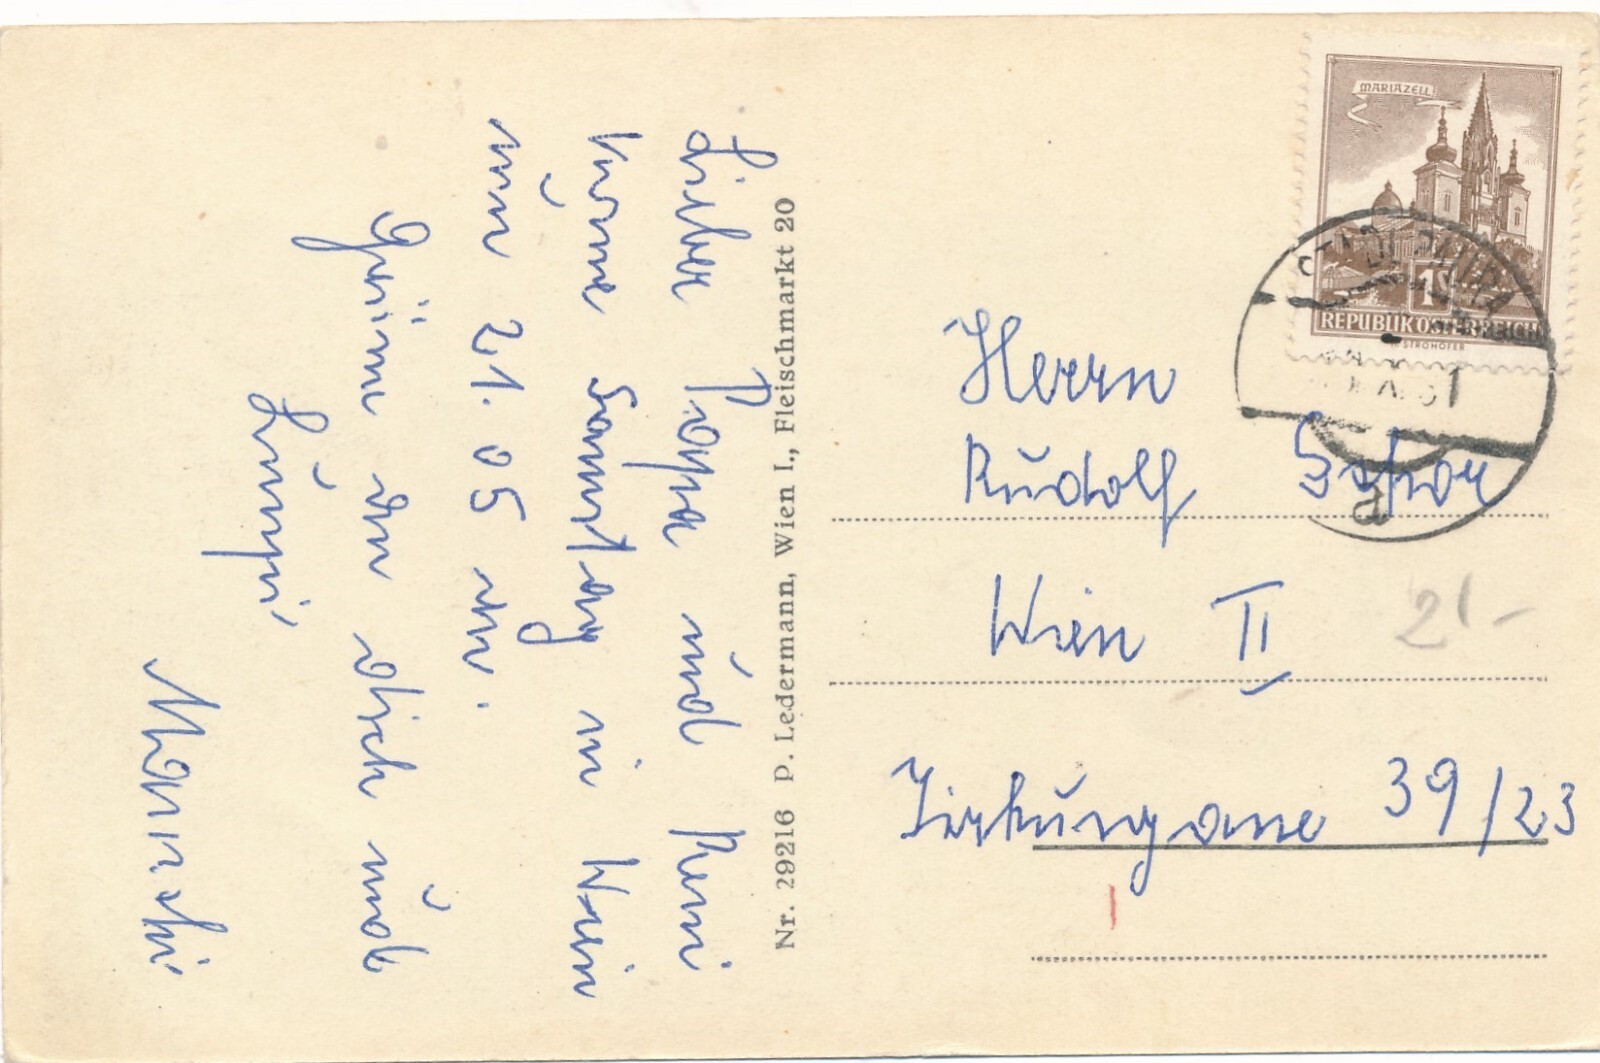 Lieber Papa und Reni
Komme Samstag in Wien
um 21.05 an.
Grüsse an dich und
Lumpi
Nr. 29216 P. Ledermann, Wien I., Fleischmarkt 20
MARIAZELL
1S
REPUBLIK ÖSTERREICH
STROHOFER
Herrn
Rudolf
Wien II
Zirkusgasse 39/23
2'-